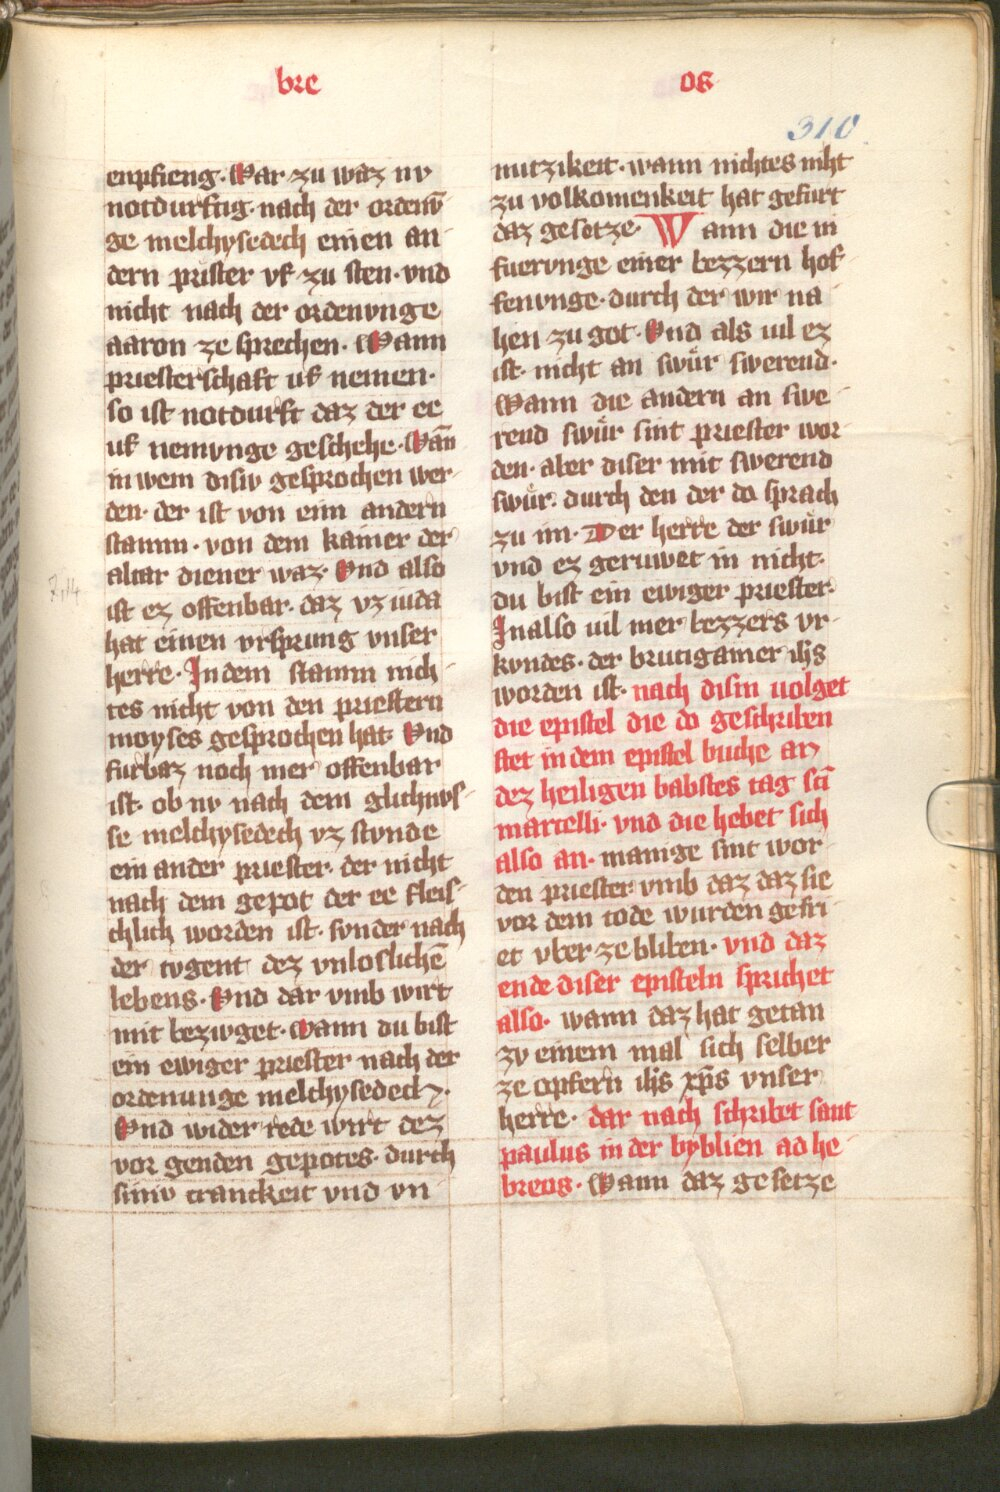 bre
os
310
enpfieng. War zu waz nv
notdurftig. nach der ordenv̄
ge melchysedech einen an
dern prister vf zu sten. vnd
nicht nach der ordenvnge
aaron ze sprechen. Wann
priesterschaft uf nemen.
so ist notdurft daz der ee
uf nemvnge geschehe. Wan̄
in wem disiv gesprochen wer
den. der ist von eim andern
stamm. von dem kainer der
altar diener waz. Vnd also
ist ez offenbar. daz vz iuda
hat einen vrsprung vnser
herre. In dem stamm nich
tes nicht von den priestern
moyses gesprochen hat. Vnd
furbaz noch mer offenbar
ist. ob nv nach dem glichnvs
se melchysedech vz stvnde
ein ander priester. der nicht
nach dem gepot der ee fleis
chlich worden ist. svnder nach
der tvgent dez vnloslichē
lebens. Vnd dar vmb wirt
mit bezivget. Wann du bist
ein ewiger priester nach der
ordenunge melchysedech.
Vnd wider rede wirt dez
vor genden gepotes. durch
siniv cranckeit vnd vn
7,14
nutzikeit. wann nichtes niht
zu volkomenkeit hat gefurt
daz gesetze. Wann die in
fuervnge einer bezzern hof
fenvnge. durch der wir na
hen zu got. Vnd als uil ez
ist. nicht an swůr swerend.
Wann die andern an swe
rend swůr sint priester wor
den. aber diser mit swerend
swůr. durch den der do sprach
zu im. Der herre der swůr
vnd ez geruwet in nicht.
du bist ein ewiger priester.
In also uil mer bezzers vr
kvndes. der brutigamer ihs
worden ist. nach disin uolget
die epistel die do geschriben
stet in dem epistel buche an
dez heiligen babstes tag scī
martelli. vnd die hebet sich
also an. manige sint wor
den priester vmb daz daz sie
vor dem tode wurden gefri
et vber ze bliben. vnd daz
ende diser episteln sprichet
also. wann daz hat getan
zv einem mal sich selber
ze opfern ihs xp̄s vnser
herre. dar nach schribet sant
paulus in der byblien ad he
breus. Wann daz gesetze